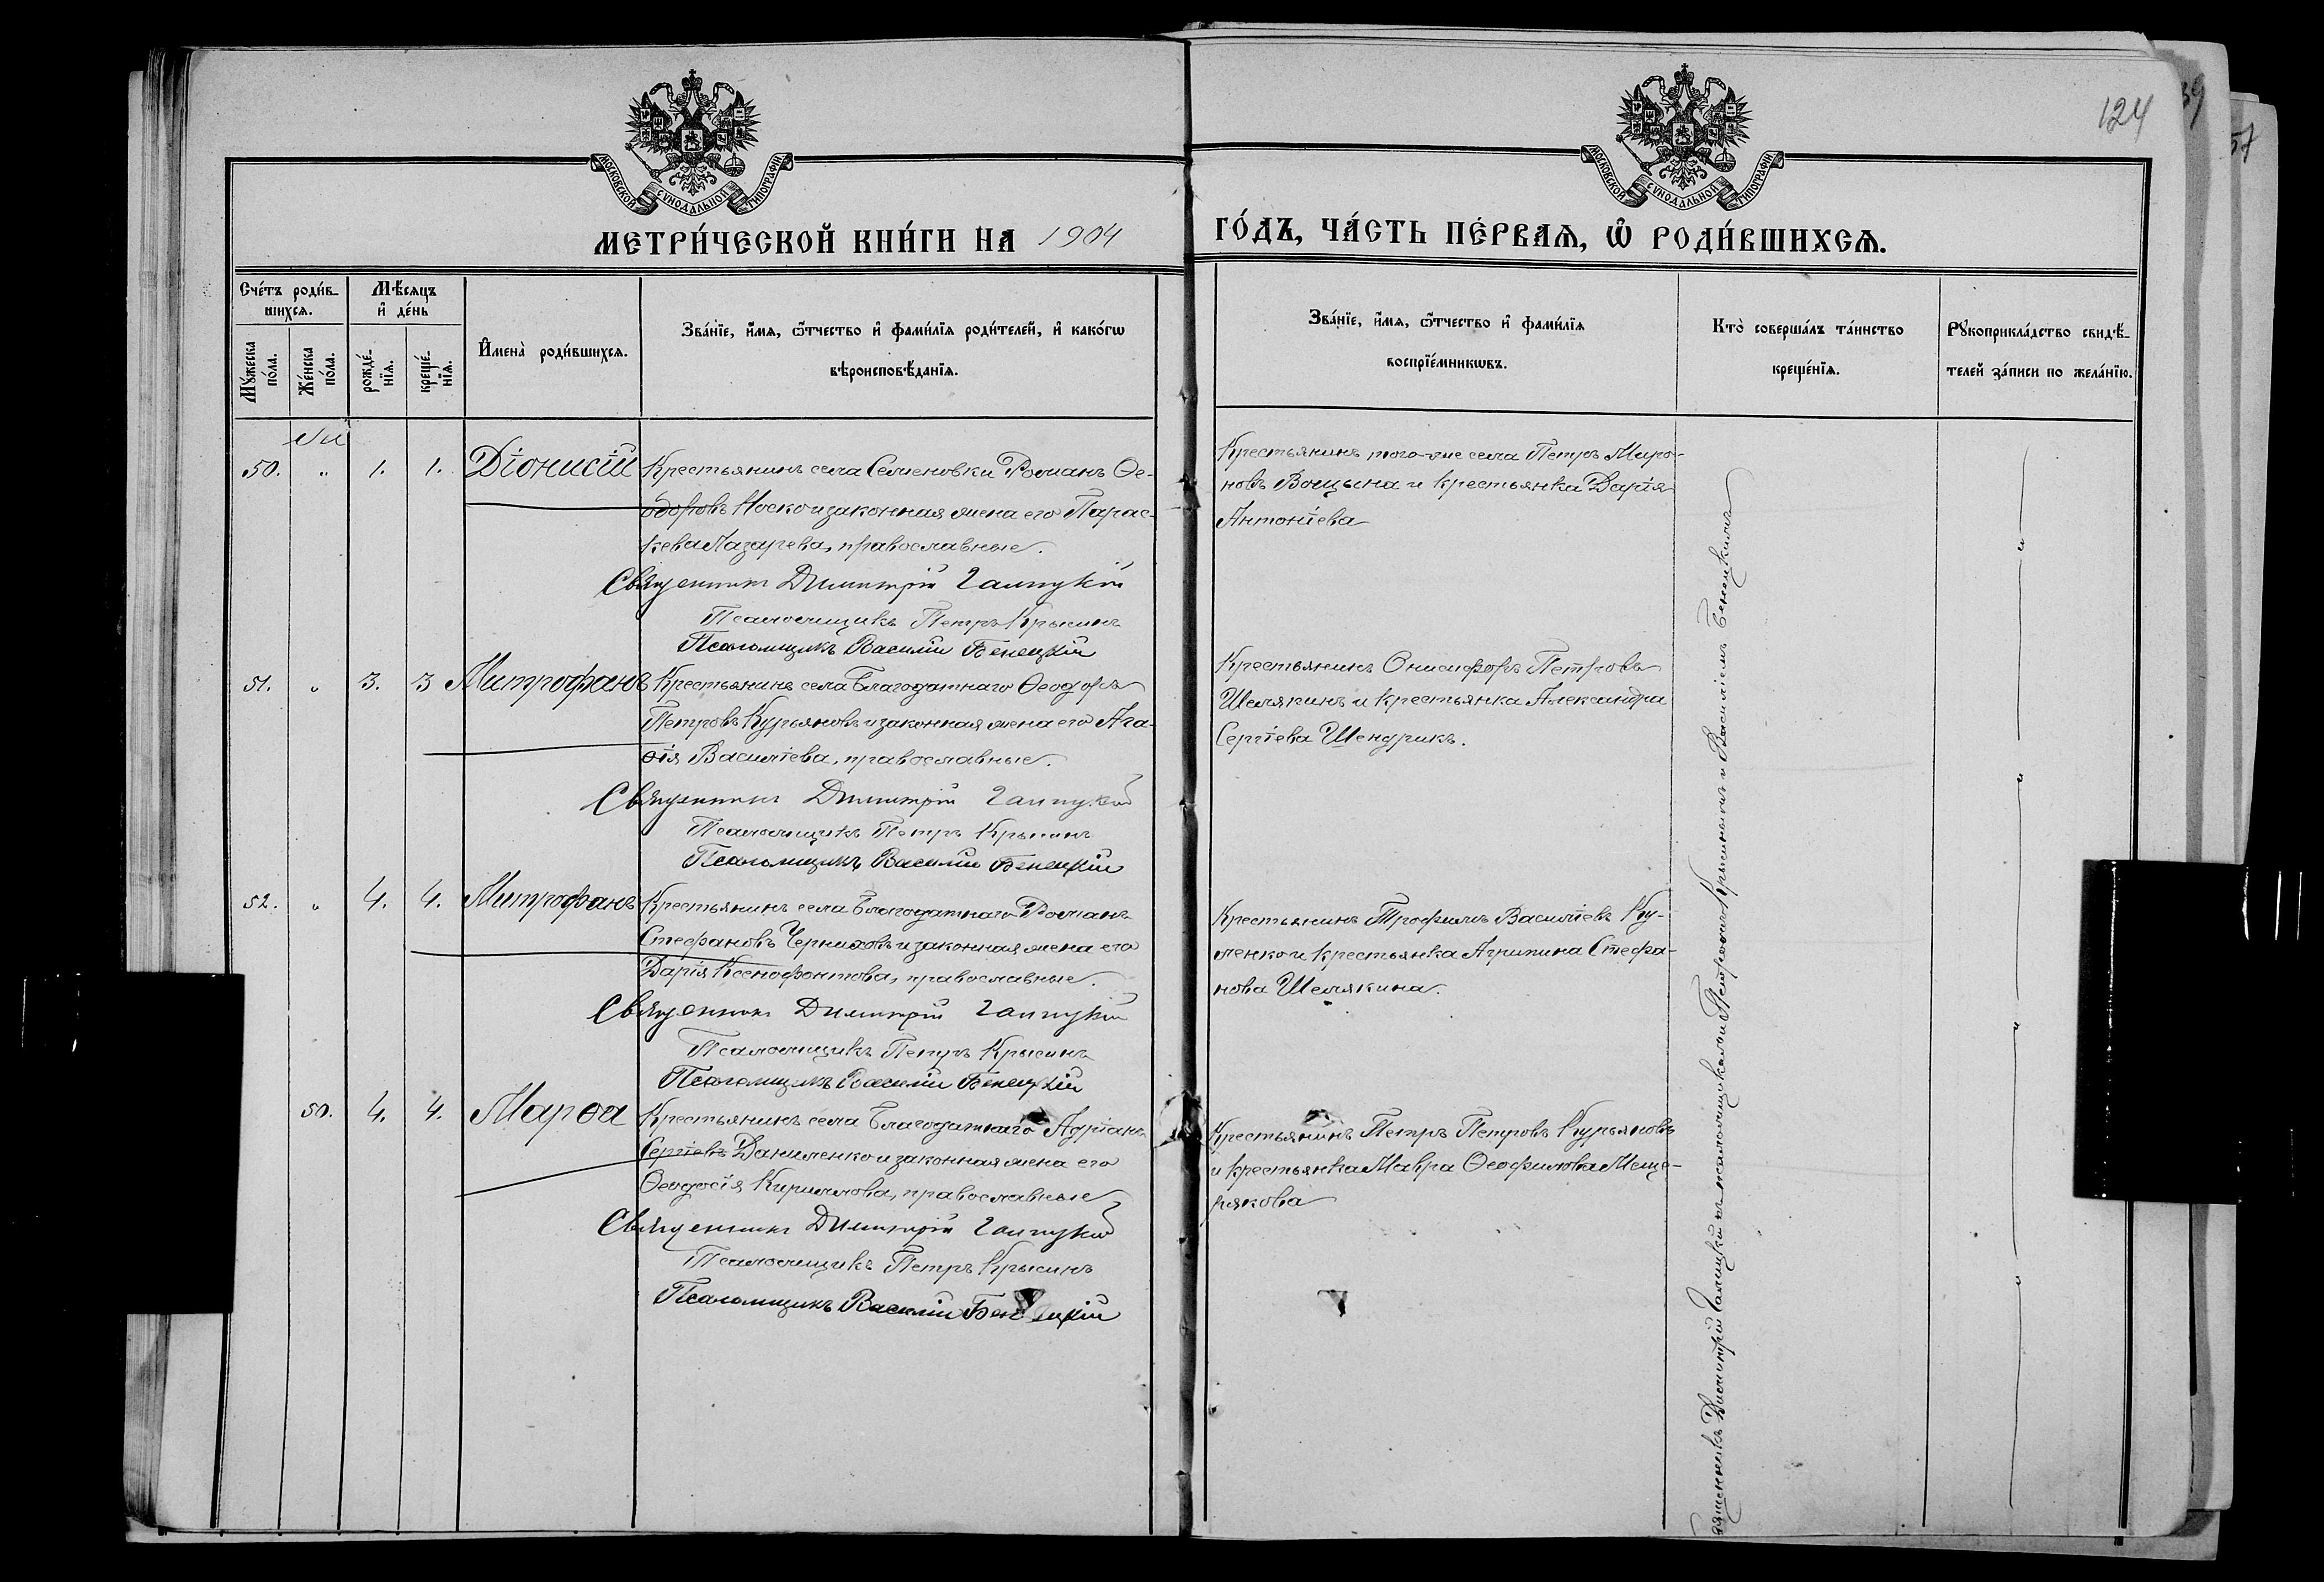 124
МОСКОВСКОЙ СУНОДАЛЬНОЙ ТИПОГРАФІИ
МОСКОВСКОЙ СУНОДАЛЬНОЙ ТИПОГРАФІИ
МЕТРИ́ЧЕСКОЙ КНИ́ГИ НА 1904
ГО́ДЪ, ЧА́СТЬ ПЕ́РВАЯ, Ѡ РОДИ́ВШИХСЯ.
Сче́тъ роди́в-
шихся.
Мѣ́сяцъ
и де́нь
Мꙋ́жеска по́ла.
Же́нска по́ла.
рожде́-
нїя.
креще́-
нїя.
Имена̀ роди́вшихся.
Зва́нїе, и́мя, ѻ́тчество и фами́лїя роди́телей, и како́гѡ
вѣроисповѣ́данїя.
Зва́нїе, и́мя, ѻ́тчество и фами́лїя
воспрїе́мникѡвъ.
Кто̀ соверша́лъ та́инство
креще́нїя.
Рꙋкоприкла́дство свидѣ́-
телей за́писи по жела́нїю.
50. " 1. 1. Діонисій
Крестьянинъ села Семеновки Романъ Ѳе-
одоровъ Носко и законная жена его Парас-
кева Лазарева, православные.
Священникъ Димитрій Галицкій
Псаломщикъ Петръ Крысинъ
Псаломщикъ Василій Бенецкій
Крестьянинъ того-же села Петръ Миро-
новъ Воцына и крестьянка Дарія
Антоніева
51. " 3. 3 Митрофанъ
Крестьянинъ села Благодатнаго Ѳеодоръ
Петровъ Курьяновъ и законная жена его Ага-
ѳія Василіева, православные.
Священникъ Димитрій Галицкій
Псаломщикъ Петръ Крысинъ
Псаломщикъ Василій Бенецкій
Крестьянинъ Онисифоръ Петровъ
Шелякинъ и крестьянка Александра
Сергіева Шендрикъ.
52. " 4. 4. Митрофанъ
Крестьянинъ села Благодатнаго Романъ
Стефановъ Черниковъ и законная жена его
Дарія Ксенофонтова, православные.
Священникъ Димитрій Галицкій
Псаломщикъ Петръ Крысинъ
Псаломщикъ Василій Бенецкій
Крестьянинъ Трофимъ Василіевъ Ку-
ленко и крестьянка Агрипина Стефа-
нова Шелякина.
50. 4. 4. Марѳа
Крестьянинъ села Благодатнаго Адріанъ
Сергіевъ Даниленко и законная жена его
Ѳеодосія Кириллова, православные
Священникъ Димитрій Галицкій
Псаломщикъ Петръ Крысинъ
Псаломщикъ Василій Бенецкій
Крестьянинъ Петръ Петровъ Курьяновъ
и крестьянка Мавра Ѳеофилова Меще-
рякова
Димитрій Галицкій съ псаломщиками Петромъ Крысинымъ и Василіемъ Бенецкимъ